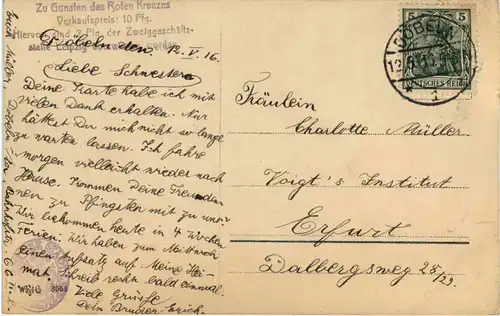 Zu Gunsten des Roten Kreuzes
Verkaufspreis: 10 Pfg.
Hiervon sind 2 Pfg. der Zweiggeschäfts-
stelle Leipzig
Döbeln, den, 12. V. 16.
Liebe Schwester!
Deine Karte habe ich mit
vielen Dank erhalten. Nur
hättest Du mich nicht so lange
zu warten lassen. Ich fahre
morgen vielleicht wieder nach
Hause. Kommen Deine Freundin-
nen zu Pfingsten mit zu uns?
Wir bekommen heute in 4 Wochen
Ferien. Wir haben zum Mittwoch
einen Aufsatz auf: Meine Hei-
mat. Schreib recht bald einmal.
Viele Grüße
Dein Bruder Erich.
Erich Müller, Döbeln
5 5
DÖBELN
DEUTSCHES REICH
1
Fräulein
Charlotte Müller
Voigt's Institut
Erfurt
Dalbergsweg 28/29.